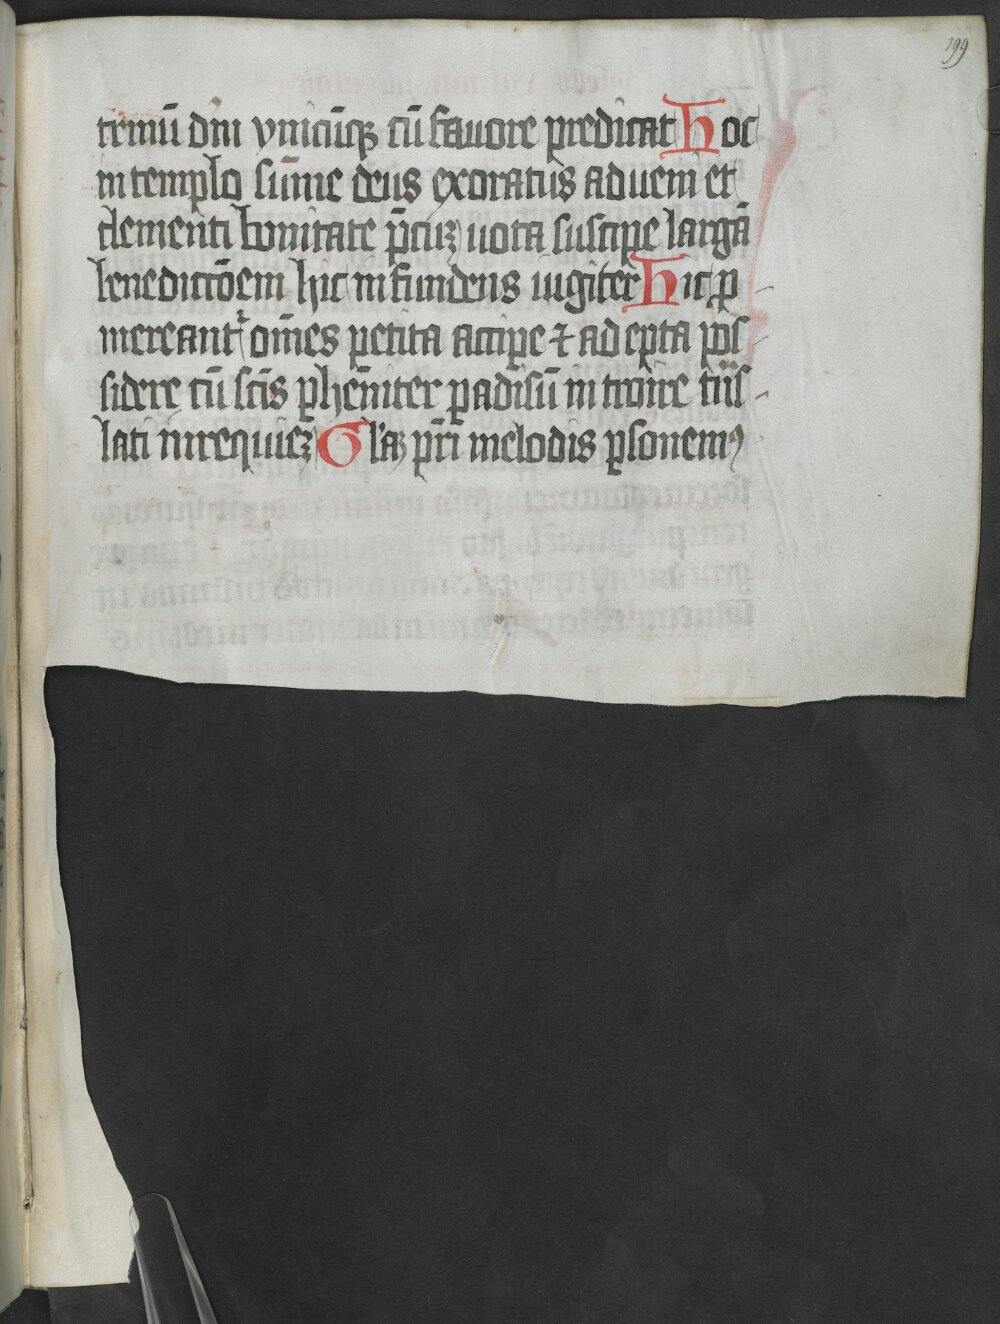 199
trinū dm̄ vnicūqꝫ cū fauore predicat Hoc
in templo sūme deus exoratus adueni et
clementi bonitate p̄cuꝫ uota suscipe largā
benedictōem hic infundens iugiter Hic ꝑ
mereant᷑ om̄es petita accipe ⁊ adepta pos
sidere cū sc̄is ꝑhēniter ꝑadisū introire tn̄s
lati in requieꝫ Gl'aꝫ pr̄i melodis ꝑsonemꝰ